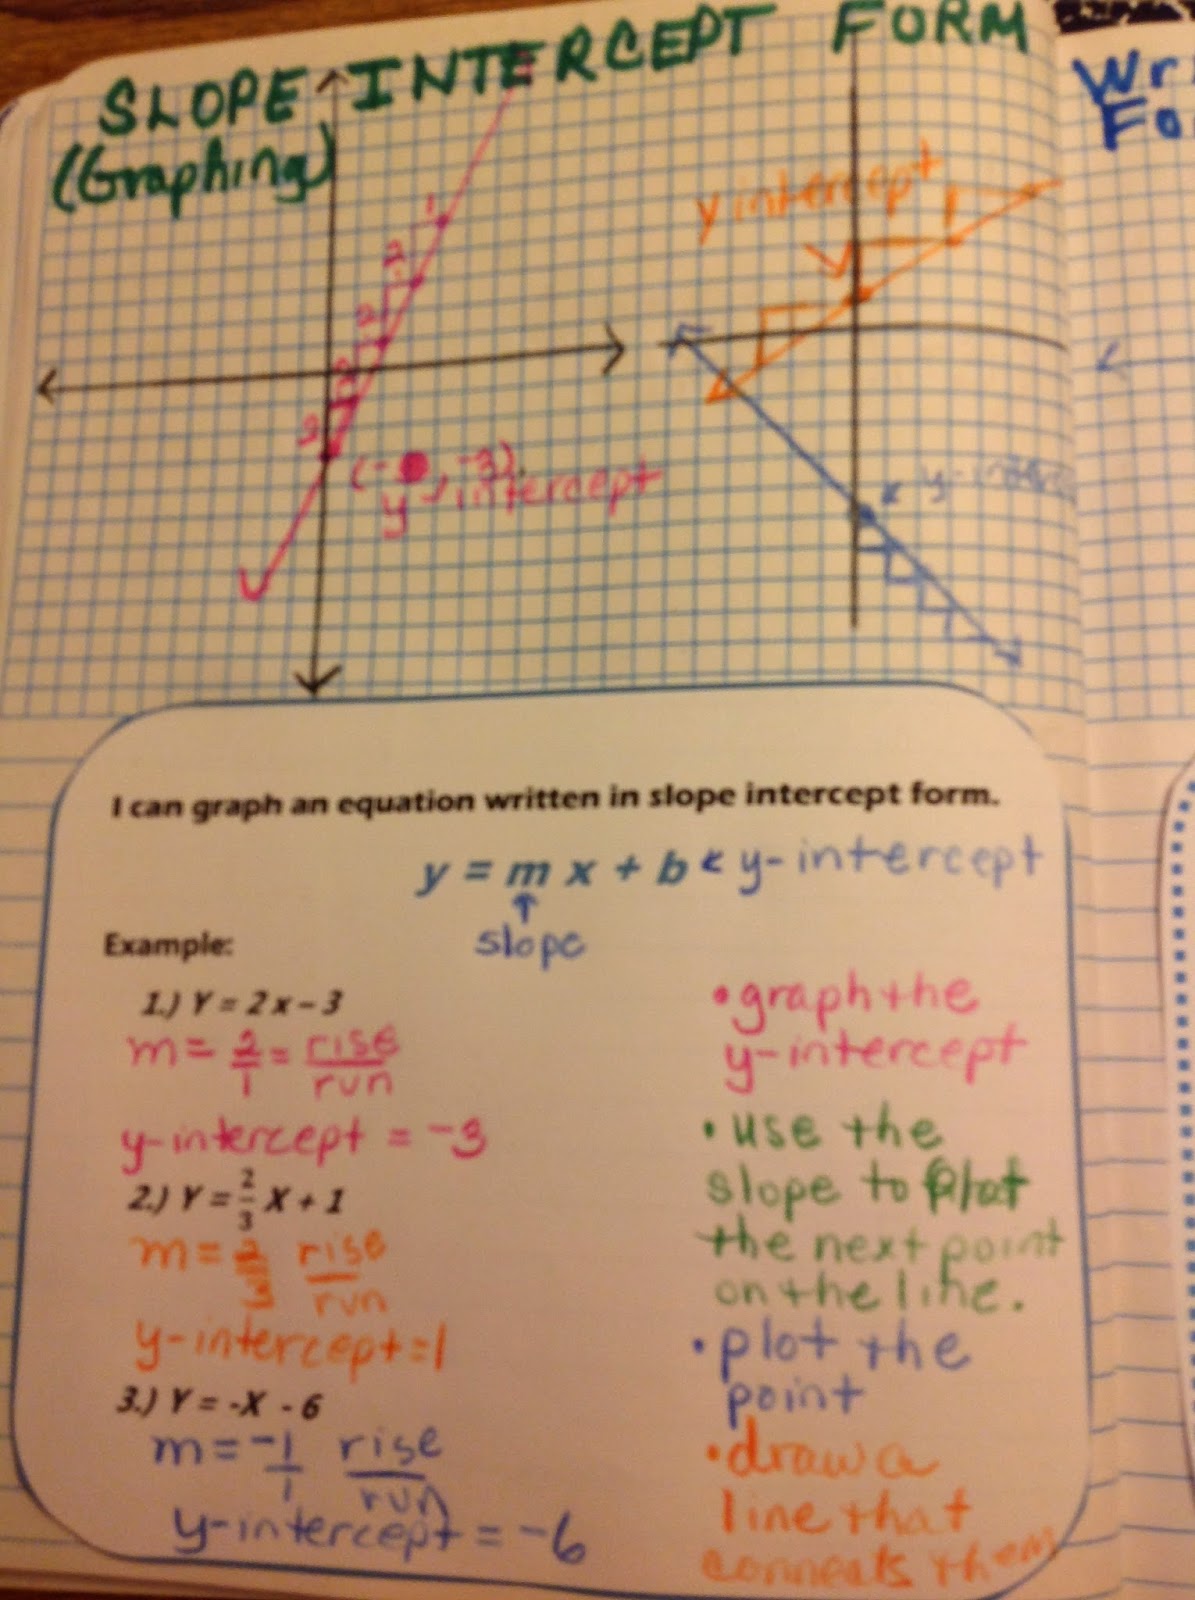 SLOPE INTERCEPT FORM
(Graphing)
Wr
Fo
y intercept
1
1
2
2
2
2
(- , -3)
y-intercept
y-inter
I can graph an equation written in slope intercept form.
y = m x + b ← y-intercept
↑
slope
Example:
1.) Y = 2x - 3
m = 2/1 = rise/run
y-intercept = -3
2.) Y = 2/3 X + 1
m = 2/3 rise/run
y-intercept = 1
3.) Y = -X - 6
m = -1/1 rise/run
y-intercept = -6
• graph the
y-intercept
• use the
slope to plot
the next point
on the line.
• plot the
point
• draw a
line that
connects them